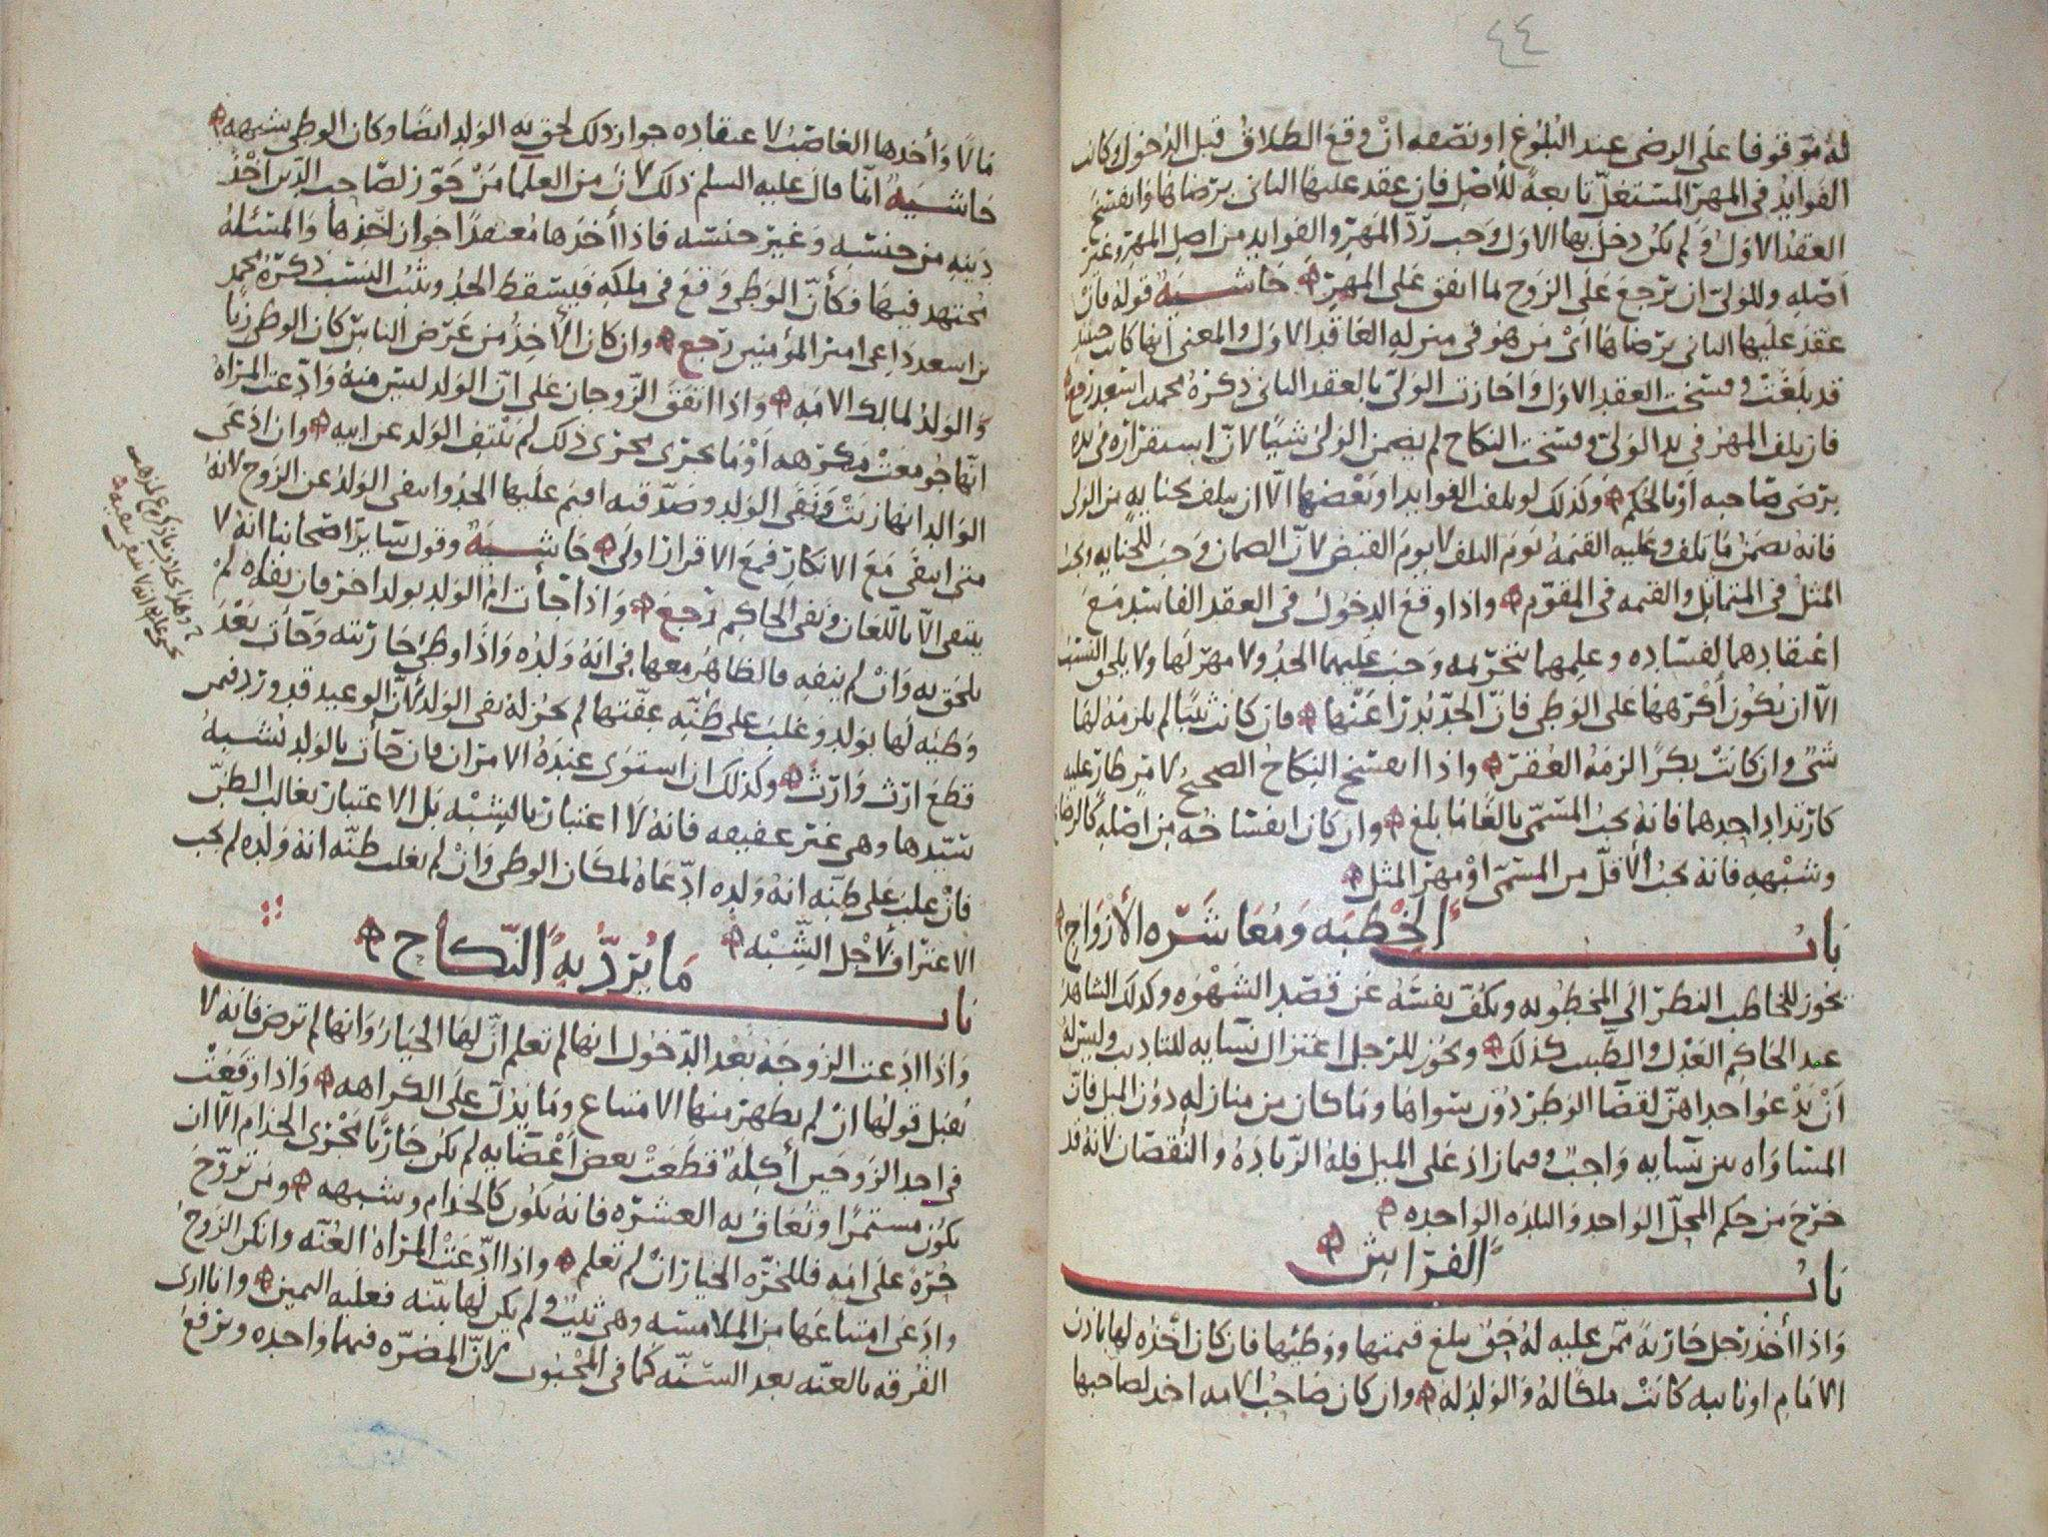 ٤٤
له موقوفا على الرضى عند البلوغ او نصفه ان وقع الطلاق قبل الدخول وكانت
الفوايد في المهر المستغل تابعة للأصل فان عقد عليها الثاني برضاها وانفسخ
العقد الاول ولم يكن دخل بها الاول وجب رد المهر والفوايد من اصل المهر وغير
اصله وللولي ان يرجع على الزوج لما انفق على المهر حاشية قوله فان
عقد عليها الثاني برضاها اي من هو في منزله العاقد الاول والمعنى انها كانت حينئذ
قد بلغت وفسخت العقد الاول واجازت الولي بالعقد الثاني ذكره محمد بن اسعد رجع
فان تلف المهر في يد الولي وفسخت النكاح لم يضمن الولي شيئا لان استقراره في يده
برضى صاحبه او بالحكم وكذلك لو تلفت الفوايد او بعضها الا ان يتلف بجنايه من الولي
فانه يضمن ما يتلف وعليه القيمه يوم التلف لا يوم القبض لان الضمان وجب للجنايه ويجب
المثل في المتماثل والقيمه في المقوم واذا وقع الدخول في العقد الفاسد مع
اعتقادهما لفساده وعلمهما بتحريمه وجب عليهما الحد ولا مهر لها ولا يلحق النسب
الا ان يكون أكرهها على الوطي فان الحد يدرا عنها فان كانت ثيبا لم يلزمه لها
شي وان كانت بكرا لزمه العقر واذا انفسخ النكاح الصحيح لامر طار عليه
كارتداد احدهما فانه يجب المسمى بالغا ما بلغ وان كان انفساخه من اصله كالرضاع
وشبهه فانه يجب الأقل من المسمى او مهر المثل
باب الخطبه ومعاشره الأزواج
يجوز للخاطب النظر الى المخطوبه ويكف نفسه عن قصد الشهوه وكذلك الشاهد
عند الحاكم العدل والطبيب كذلك ويجوز للرجل اعتزال نسايه للتاديب وليس له
أن يدعو احداهن لقضا الوطر دون سواها وما كان من منازله دون الميل فان
المساواه بين نسايه واجب وفيما زاد على الميل فله الزياده والنقصان لانه قد
خرج من حكم المحل الواحد والبلده الواحده
باب الفراش
واذا أخذ رجل جارية ممن عليه له حق يبلغ قيمتها ووطئها فان كان اخذه لها باذن
الامام او نايبه كانت ملكا له والولد له وان كان صاحب الامه اخذ لصاحبها
مالا وأخذها الغاصب لاعتقاده جواز ذلك لحق به الولد ايضا وكان الوطي شبهه
حاشية انما قال عليه السلم ذلك لان من العلما من جوز لصاحب الدين اخذ
دينه من جنسه وغير جنسه فاذا أخذها معتقدا جواز اخذها والمسئله
مجتهد فيها فكأن الوطي وقع في ملكه فيسقط الحد ويثبت النسب ذكره محمد
بن اسعد داعي امير المؤمنين رجع وان كان الأخذ من عرض الناس كان الوطي زنا
والولد لمالك الامه واذا اتفق الزوجان على ان الولد ليس منه وادعت المراه
انها جومعت مكرهه او ما يجرى مجرى ذلك لم ينتف الولد عن ابيه وان ادعى
الوالد انها زنت ونفى الولد وصدقته اقيم عليها الحد وانتفى الولد عن الزوج لانه
متى انتفى مع الانكار فمع الاقرار اولى حاشية وقول ساير اصحابنا انه لا
ينتفي الا باللعان ونفي الحاكم رجع واذا جأت ام الولد بولد اخر فان نفاه لم
يلحق به وان لم ينفه فالظاهر معها في انه ولده واذا وطئ جاريته وجأت بعد
وطيه لها بولد وغلب على ظنه عفتها لم يجز له نفي الولد لأن الوعيد قد ورد فيمن
قطع ارث وارث وكذلك ان استوى عنده الامران فان جأت بالولد لشبه
سيدها وهي غير عفيفه فانه لا اعتبار بالشبه بل الاعتبار بغالب الظن
فان غلب على ظنه انه ولده ادعاه لمكان الوطي وان لم يغلب ظنه انه ولده لم يجب
الاعتراف لأجل الشبه
باب ما يرد به النكاح
واذا ادعت الزوجه بعد الدخول انها لم تعلم ان لها الخيار وانها لم ترض فانه لا
يقبل قولها ان لم يظهر منها الامتناع وما يدل على الكراهه واذا وقعت
في احد الزوجين أكلة قطعت بعض اعضايه لم يكن جاريا مجرى الجذام الا ان
يكون مستمرا وتعاف به العشره فانه يكون كالجذام وشبهه ومن تزوج
حرة على امه فللحره الخيار ان لم تعلم واذا ادعت المراه العنه وانكر الزوج
وادعى امتناعها من الملامسه وهي ثيب ولم يكن لها بينه فعليه اليمين وانا ارى
الفرقه بالعنه بعد السنه كما في المجبوب لأن المضره فيهما واحده وترفع